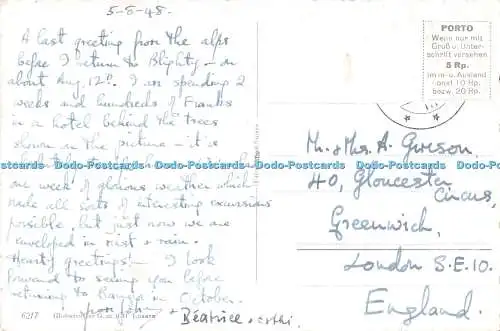 5-8-48.
A last greeting from the alps
before I return to Blighty - on
about Aug. 12th. I am spending 2
weeks and hundreds of Franks
in a hotel behind the trees
shown in the picture - it's
one week of glorious weather which
made all sorts of interesting excursions
possible, but just now we are
enveloped in mist & rain.
Hearty greetings! - I look
forward to seeing you before
returning to in October.
from
+ Béatrice
6217
PORTO
Wenn nur mit
Gruß u. Unter-
schrift versehen
5 Rp.
im In- u. Ausland
sonst 10 Rp.
bezw. 20 Rp.
Mr. & Mrs. A. Greson.
40, Gloucester
Circus,
Greenwich,
London S.E.10.
England.
Dodo-Postcards Dodo-Postcards Dodo-Postcards Dodo-Postcards Dodo-Postcards Dodo-Postcards